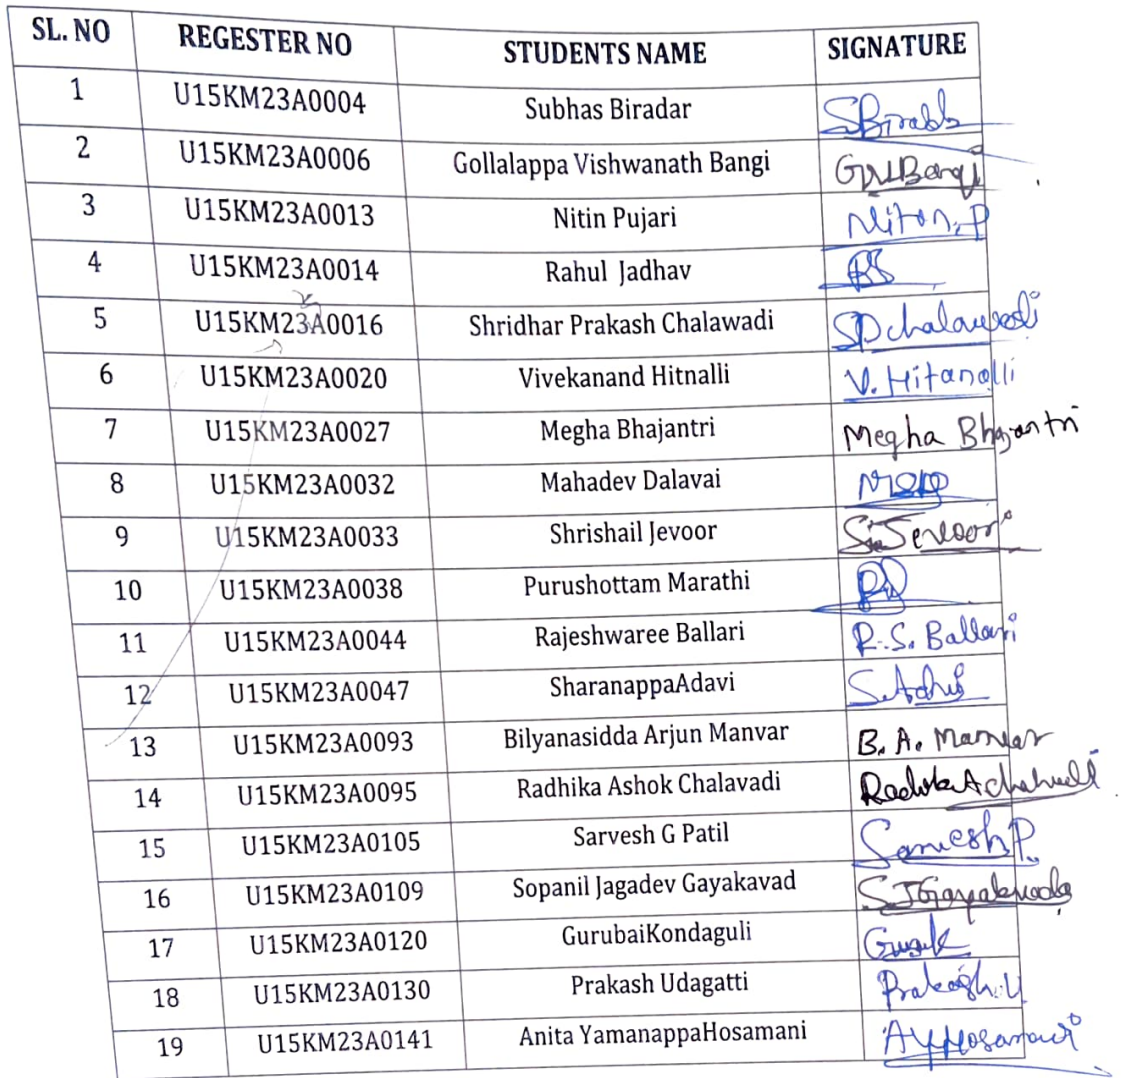 SL. NO REGESTER NO STUDENTS NAME SIGNATURE
1 U15KM23A0004 Subhas Biradar
2 U15KM23A0006 Gollalappa Vishwanath Bangi GVBangi
3 U15KM23A0013 Nitin Pujari Nitin.P
4 U15KM23A0014 Rahul Jadhav
5 U15KM23A0016 Shridhar Prakash Chalawadi SPchalawadi
6 U15KM23A0020 Vivekanand Hitnalli V. Hitanalli
7 U15KM23A0027 Megha Bhajantri Megha Bhajantri
8 U15KM23A0032 Mahadev Dalavai
9 U15KM23A0033 Shrishail Jevoor S.Jevoor
10 U15KM23A0038 Purushottam Marathi
11 U15KM23A0044 Rajeshwaree Ballari R.S. Ballari
12 U15KM23A0047 SharanappaAdavi
13 U15KM23A0093 Bilyanasidda Arjun Manvar B. A. Manvar
14 U15KM23A0095 Radhika Ashok Chalavadi
15 U15KM23A0105 Sarvesh G Patil Sarvesh.P.
16 U15KM23A0109 Sopanil Jagadev Gayakavad
17 U15KM23A0120 GurubaiKondaguli
18 U15KM23A0130 Prakash Udagatti Prakash.U
19 U15KM23A0141 Anita YamanappaHosamani AYHosamani